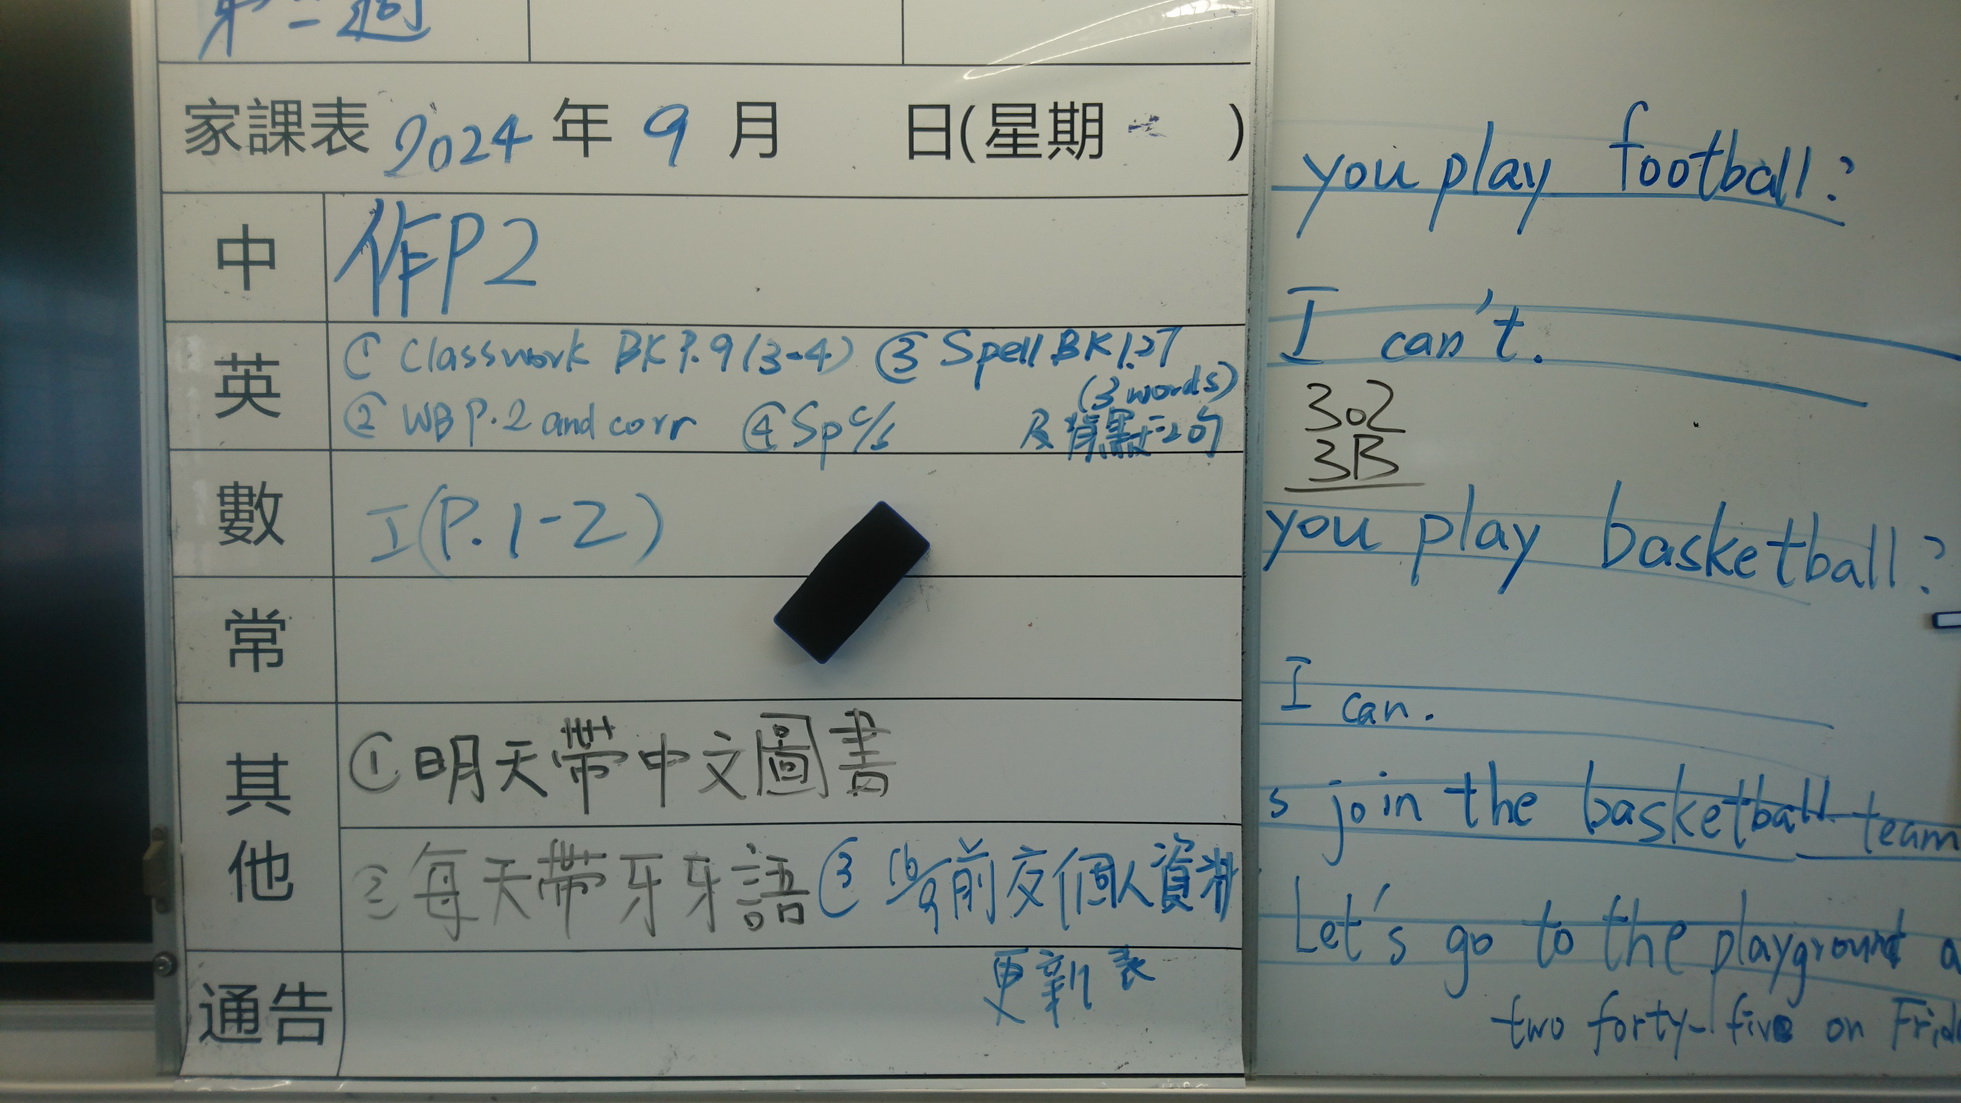 第二週
家課表 2024 年 9 月 日(星期 )
中 作P2
英 ① Classwork BK P.9 (3-4) ③ Spell BK P.7
(3 words)
② WB P.2 and corr ④ Sp c/s 及背默二句
數 I(P.1-2)
常
其他 ① 明天帶中文圖書
② 每天帶牙牙語 ③ 16/9前交個人資料
更新表
通告
you play football?
I can't.
302
3B
you play basketball?
I can.
s join the basketball team
Let's go to the playground a
two forty-five on Frid